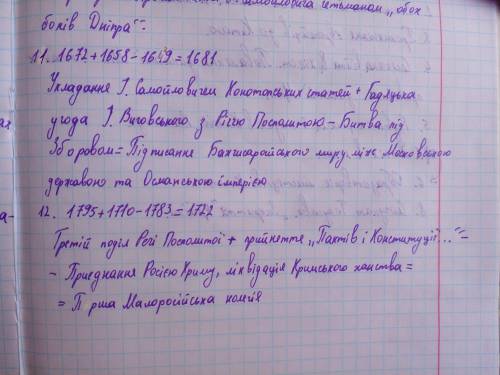 гетьманом „обох
боків Дніпра“.
11. 1672 + 1658 - 1649 = 1681
Укладання І. Самойловичем Конотопських статей + Гадяцька
угода І. Виговського з Річчю Посполитою - Битва під
Зборовом = Підписання Бахчисарайського миру між Московською
державою та Османською імперією
12. 1795 + 1710 - 1783 = 1722
Третій поділ Речі Посполитої + прийняття „Пактів і Конституцій..." -
- Приєднання Росією Криму, ліквідація Кримського ханства =
= П рша Малоросійська колегія